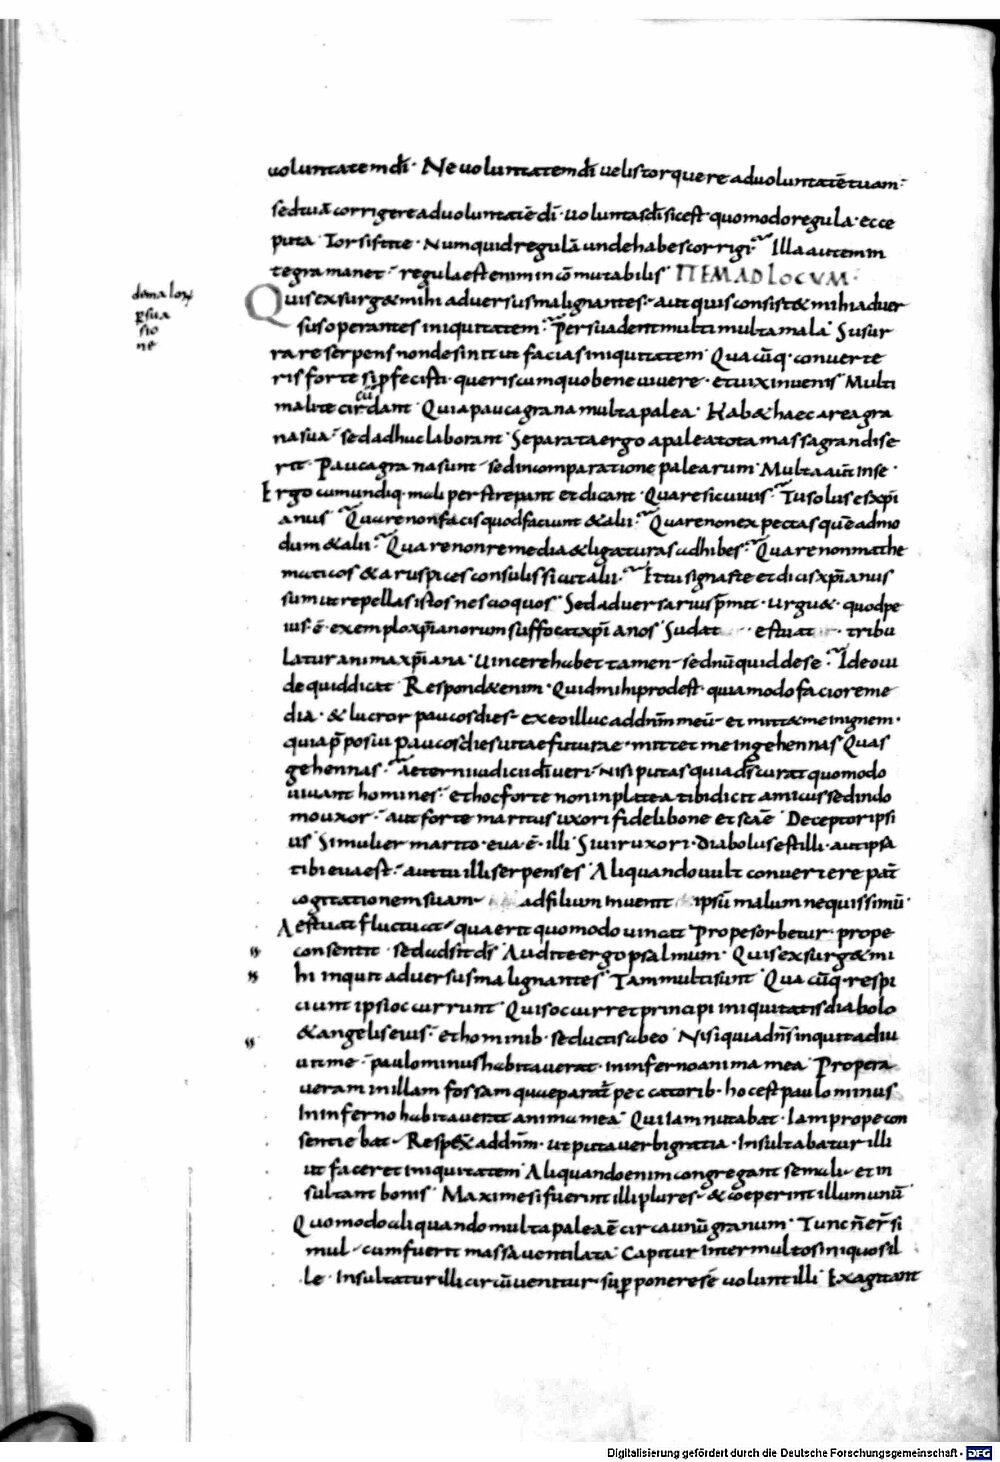 uoluntatem dī · Ne uoluntatem dī uelis torquere ad uoluntatē tuam ·
sed tuā corrigere ad uoluntatē dī · uoluntas dī sic est · quomodo regula · ecce
puta · Torsis te · Numquid regulā unde habes corrigi · Illa autem in
tegra manet · regula est enim incōmutabilis · ITEM AD LOCUM ·
de malorū
p̱sua
sio
ne
Quis exsurg& mihi aduersus malignantes · aut quis consist& mihi aduer
sus operantes iniquitatem · Persuadent multi multa mala · Susur
rare serpens non desinit ut facias iniquitatem · Quacūq· conuerte
ris forte si p̱fecisti · queris cum quo bene uiuere · et uix inuenis · Multi
mali te circūdant · Quia pauca grana multa palea · Hab& haec area gra
na sua · sed adhuc laborant · Separata ergo a palea tota massa grandis e
rit · Pauca grana sunt · sed in comparatione palearum · Multa aūt in se ·
Ergo cum undiq· mali perstrepant et dicant · Quare sic uiuis · Tu solus es xp̄i
anus · Quare non facis quod faciunt & alii · Quare non expectas quēadmo
dum & alii · Quare non remedia & ligaturas adhibes · Quare non mathe
maticos & aruspices consulis sicut alii · Et tu signas te et dicis xp̄ianus
sum ut repellas istos nescio quos · Sed aduersarius p̄mit · urgu& · quod pe
ius ē · exemplo xp̄ianorum suffocat xp̄ianos · Sudat estuat tribu
latur anima xp̄iana · Uincere habet tamen · sed nūquid de se · Ideo ui
de quid dicat · Respond& enim · Quid mihi prodest · quia modo facio reme
dia · & lucror paucos dies · exeo illuc ad dn̄m meū · et mitt& me in ignem ·
quia p̄posui paucos dies uitae futurae · mittet me in gehennas · Quas
gehennas · Aeterni iudicii dī ueri · Nisi putas quia ds̄ curat quomodo
uiuant homines · et hoc forte non in platea tibi dicit amicus sed in do
mo uxor · aut forte maritus uxori fideli bone et scāe · Deceptor ipsi
us · Si mulier marito · eua ē · illi · Si uir uxori · diabolus est illi · aut ipsa
tibi eua est · aut tu illi serpens es · Aliquando uult conuertere pat̄
cogitationem suam ad filium inuenit ipsū malum nequissimū ·
Aestuat fluctuat · quaerit quomodo uincat · Prope sorbetur · prope
consentit · sed ads̄it ds̄ · Audite ergo psalmum · Quis exsurg& mi
hi inquit aduersus malignantes · Tam multi sunt · Quacūq· respi
ciunt ipsi occurrunt · Quis occurret principi iniquitatis diabolo
& angelis eius · et hominib· seductis ab eo · Nisi quia dn̄s inquit adiu
uit me · paulominus habitauerat in inferno anima mea · Prope ra
ueram in illam fossam quae parat̄ peccatorib· hoc est paulominus
In inferno habitauerat anima mea · Quia iam nutabat · Iam prope con
sentiebat · Respex̄ ad dn̄m · ut puta uerbi gratia · Insultabatur illi
ut faceret iniquitatem · Aliquando enim congregant se mali · et in
sultant bonis · Maxime si fuerint illi plures · & coeperint illum unū
Quomodo aliquando multa palea ē circa unū granum · Tunc n̄ er̄ si
mul · cum fuerit massa uentilata · Capitur inter multos iniquos il
le · Insultatur illi circūuenitur · sup̱ponere se uolunt illi · Exagitant
Digitalisierung gefördert durch die Deutsche Forschungsgemeinschaft - DFG